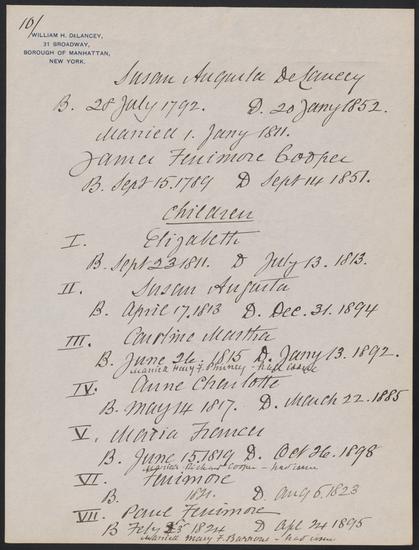 10/
WILLIAM H. DELANCEY,
31 BROADWAY,
BOROUGH OF MANHATTAN,
NEW YORK.
Susan Augusta DeLancey
B. 28 July 1792. D. 20 Jany 1852.
Married 1. Jany 1811.
James Fenimore Cooper
B. Sept 15. 1789 D Sept 14 1851.
Children
I. Elizabeth
B. Sept 23 1811. D July 13. 1813.
II. Susan Augusta
B. April 17, 1813 D. Dec. 31. 1894
III. Caroline Martha
B. June 26. 1815 D. Jany 13. 1892.
Married Henry F. Phinney - had issue
IV. Anne Charlotte
B. May 14 1817. D. March 22. 1885
V. Maria Frances
B. June 15. 1819 D. Oct 26. 1898
Married Richard Cooper - had issue
VI Fenimore
B. 1821. D. Aug 5, 1823
VII. Paul Fenimore
B Feby 1824 D Apl 24 1895
Married Mary F. Barrows - had issue